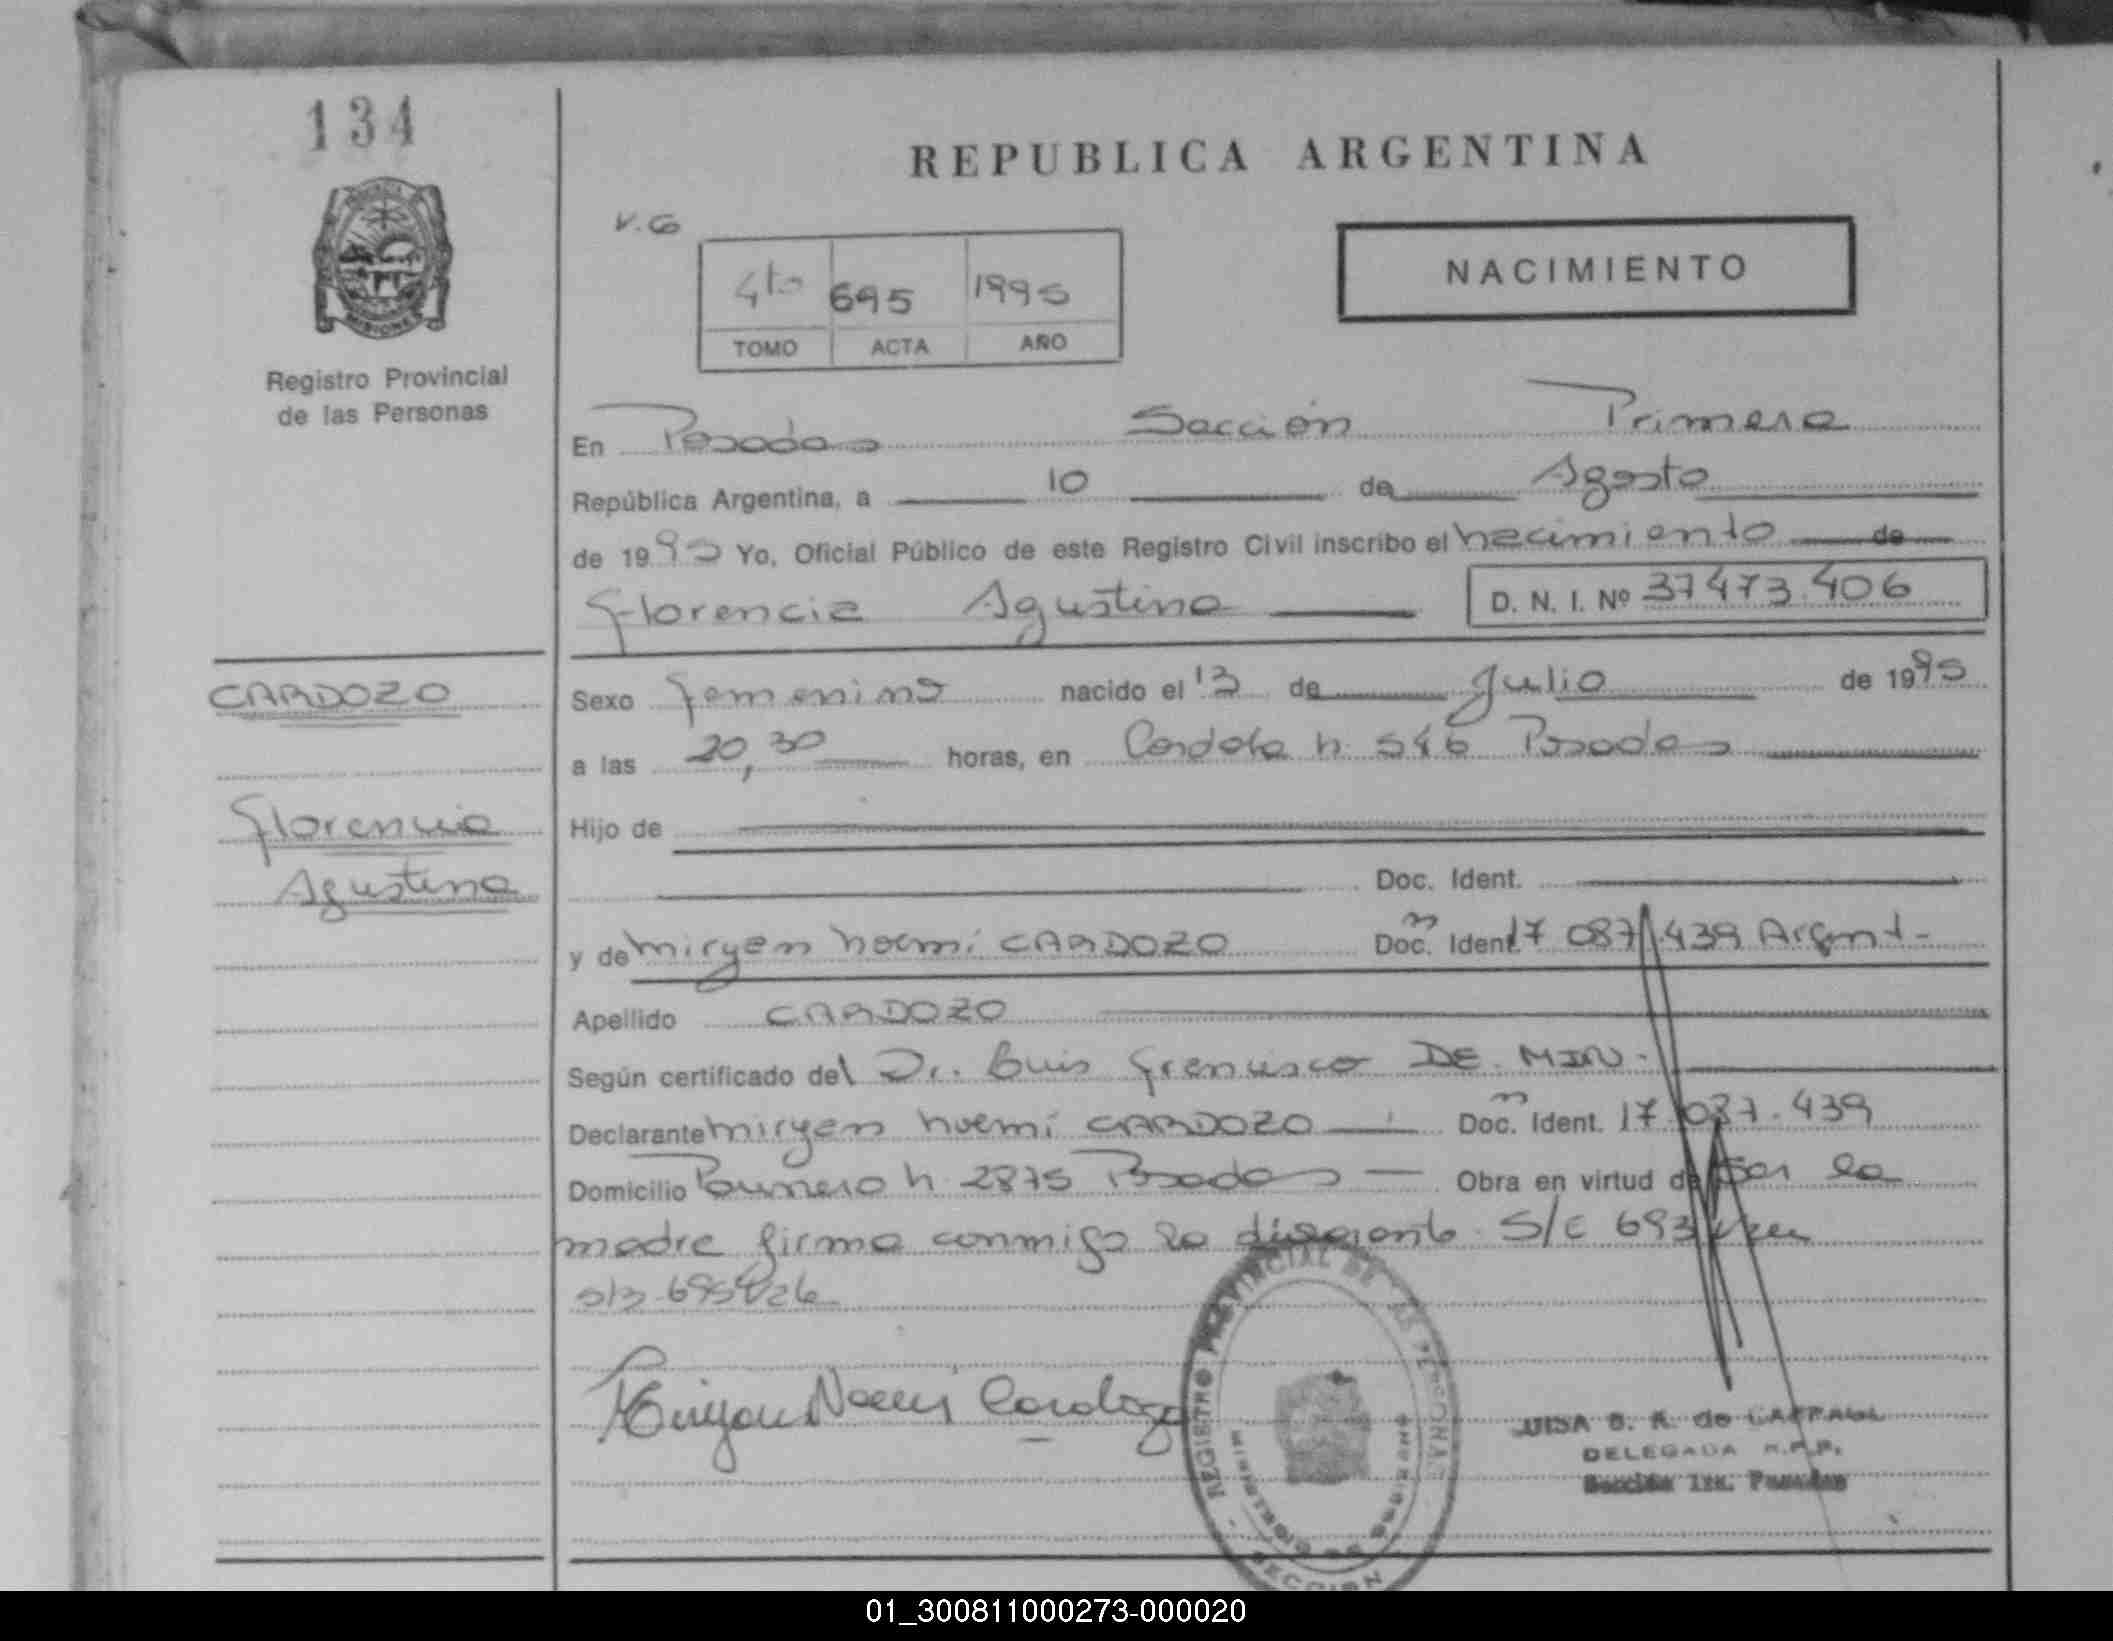 134
REPUBLICA ARGENTINA
V.G
NACIMIENTO
4to 695 1995
TOMO ACTA AÑO
MISIONES
Registro Provincial
de las Personas
En Posadas Sección Primera
República Argentina, a 10 de Agosto
de 1995 Yo, Oficial Público de este Registro Civil inscribo el nacimiento de
Florencia Agustina
D. N. I. Nº 37473.406
CARDOZO
Sexo femenino nacido el 13 de Julio de 1995
a las 20,30 horas, en Cordoba n. 546 Posadas
Florencia
Hijo de
Agustina
Doc. Ident.
y de Miryen Noemi CARDOZO Doc. Ident. 17 087.439 Argent-
Apellido CARDOZO
Según certificado del Dr. Luis Francisco DE MIN.
Declarante Miryen Noemi CARDOZO Doc. Ident. 17.087.439
Domicilio n 2875 Posadas Obra en virtud de ser la
madre firma conmigo la S/C 693
Noemi Cardozo
REGISTRO PROVINCIAL DE LAS PERSONAS
MINISTERIO DE GOBIERNO
SECCION
LUISA B. R. de
DELEGADA R.P.P.
Sección 1ra. Posadas
01_300811000273-000020